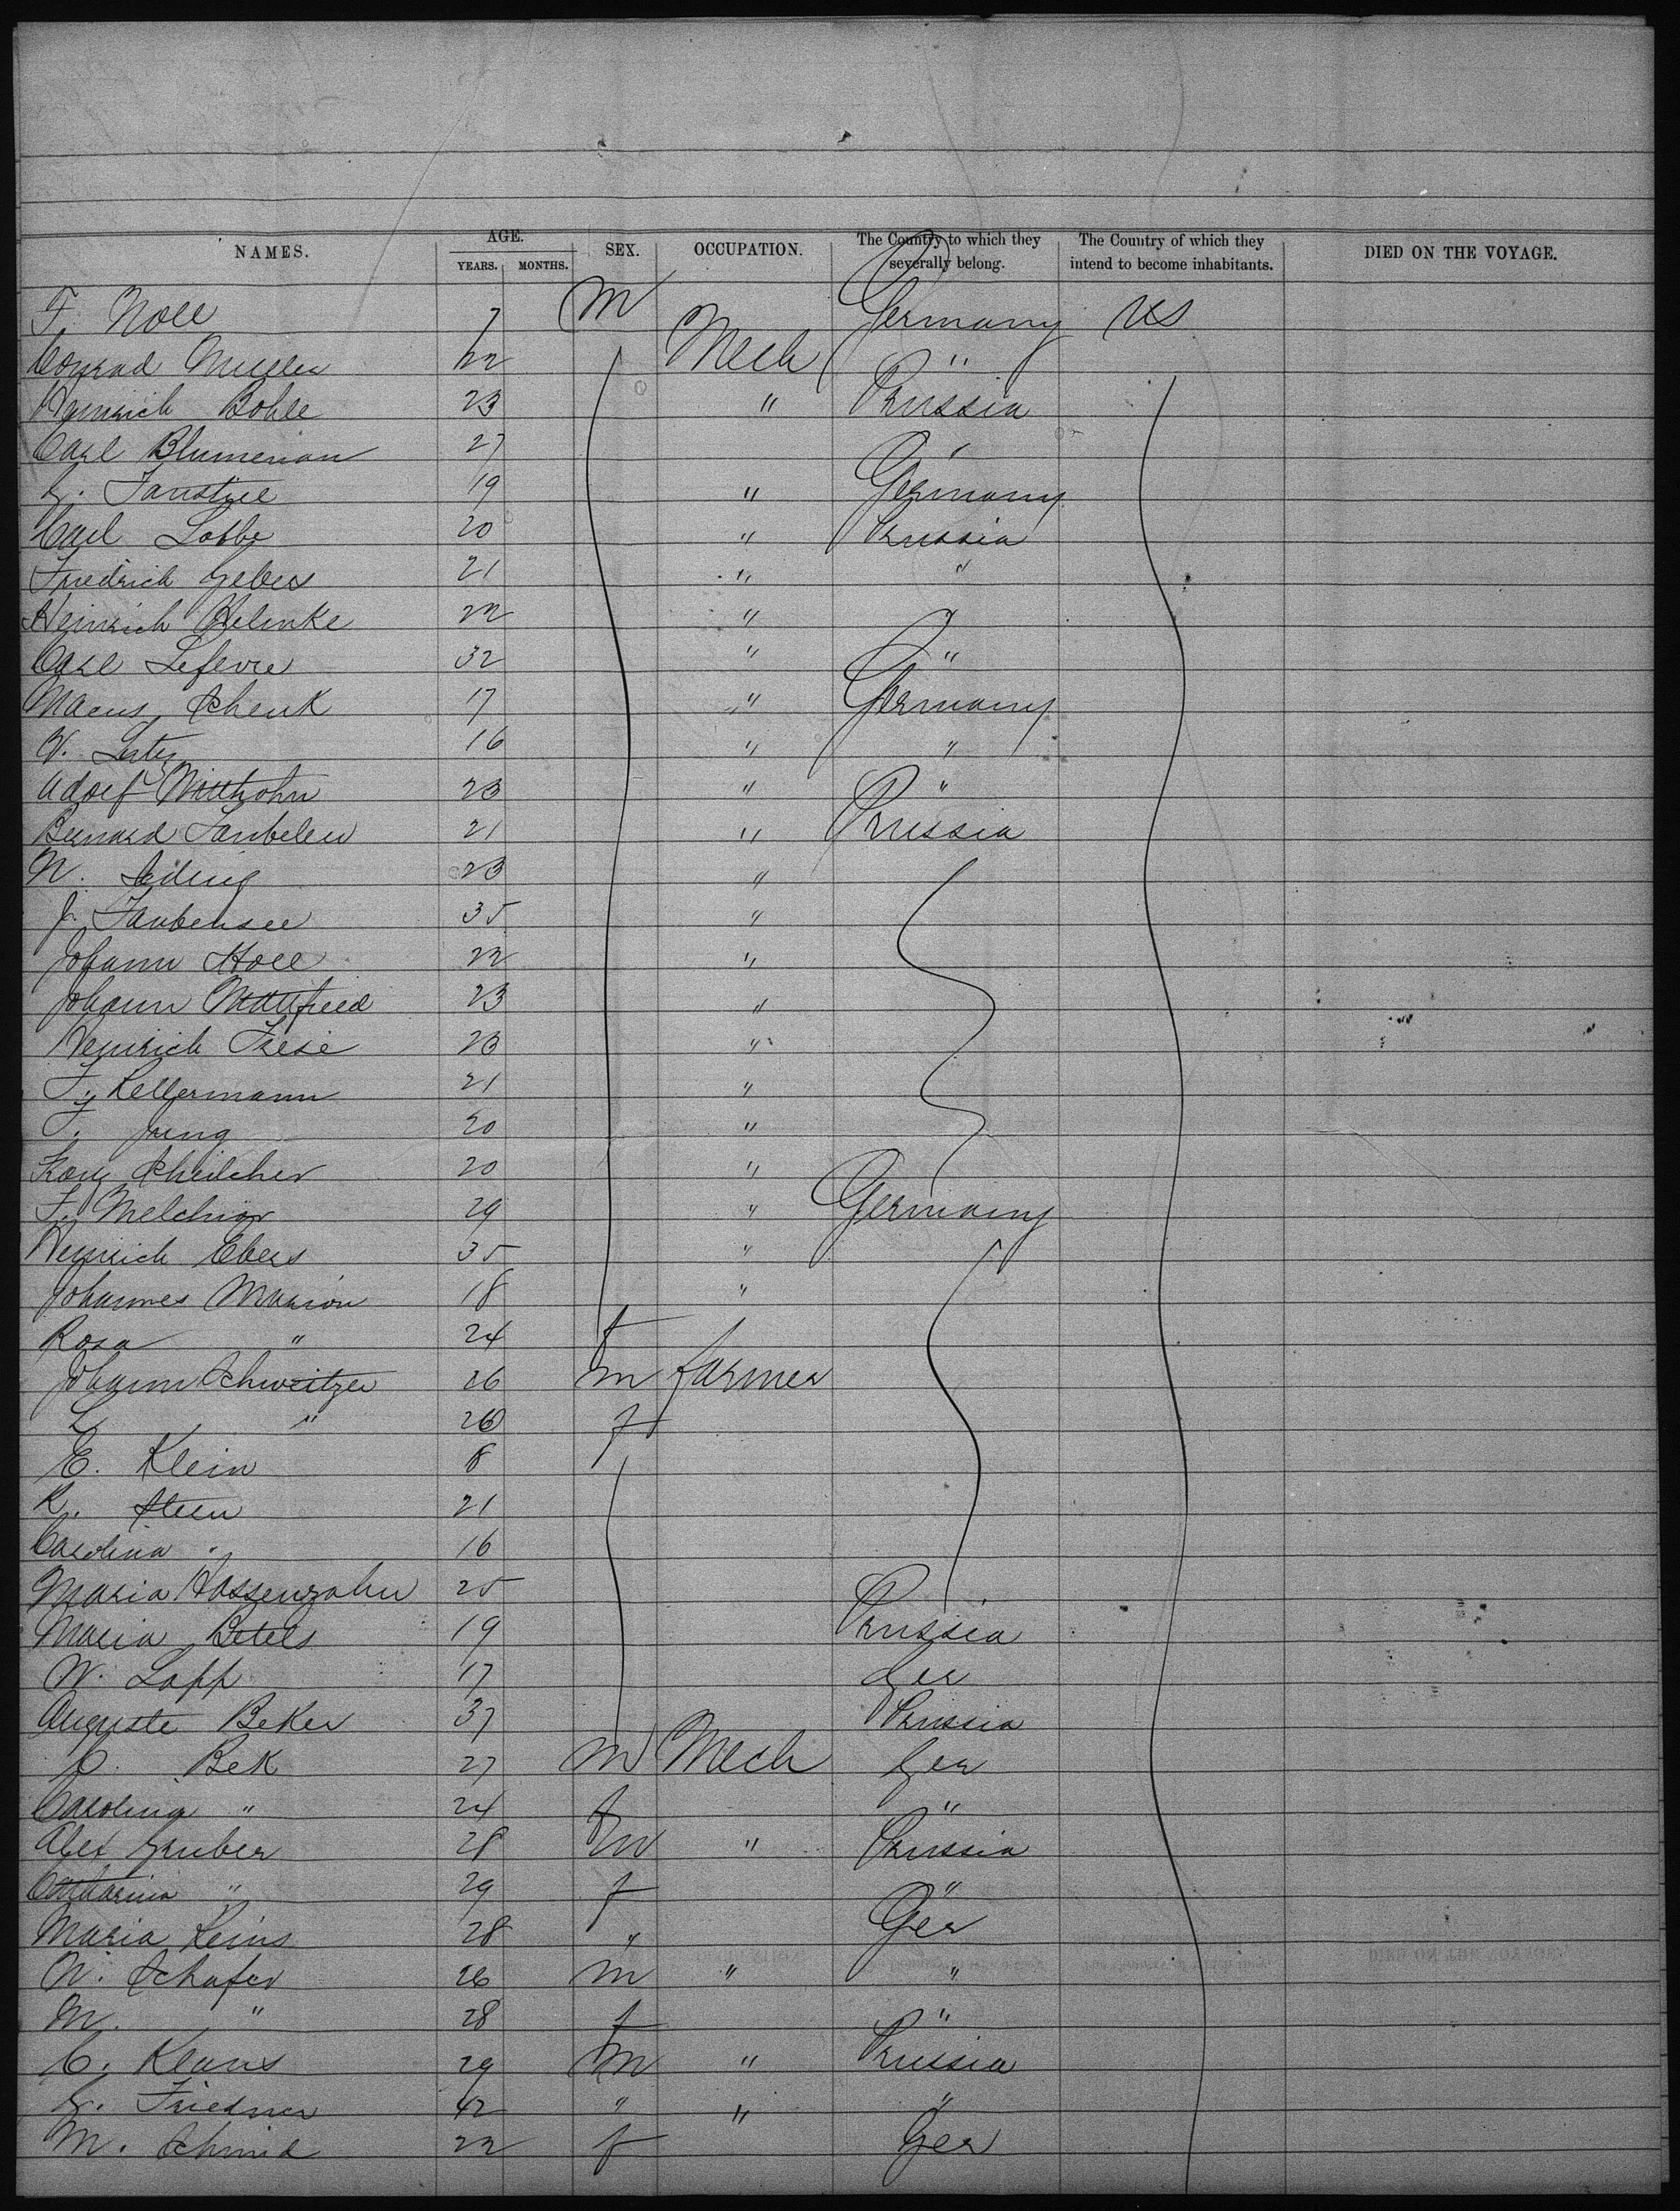 NAMES. AGE. YEARS. MONTHS. SEX. OCCUPATION. The Country to which they severally belong. The Country of which they intend to become inhabitants. DIED ON THE VOYAGE.
F. Noll 7 m Germany US
Conrad Muller 22 Mech "
Heinrich Bohle 23 " Prussia
Carl Blumenau 27
G. 19 " Germany
Carl Lobbe 20 " Prussia
Friedrich Gebers 21 " "
Heinrich Helmke 22 " "
Carl Lefevre 32 " "
Marcus Schenk 17 " Germany
16 " "
Adolf Witthohn 23 " "
Bernard 21 " Prussia
N. 23 "
J. Taubensee 35 "
Johann Stoll 22 "
Johann 23 "
Heinrich Frese 23 "
F. Kellermann 21 "
F. Jung 20 "
20 "
F. Melchior 29 " Germany
Heinrich Ebers 35 "
Johannes Marion 18 "
Rosa " 24 f
Johann Schweitzer 26 m farmer
L. " 26 f
E. Klein 8
R. Steen 21
Carolina " 16
Maria Hassenzahn 25
Maria Betels 19 Prussia
W. Lapp 17 Ger
Auguste Beker 37 Prussia
C. Bek 27 m Mech Ger
Carolina " 24 f "
Alex Gruber 28 m " Prussia
Catharina " 29 f "
Maria Keins 28 " Ger
N. Schafer 26 m " "
M. " 28 f "
C. Klaus 29 m " Prussia
G. Friedner 42 " " "
M. Schmid 22 f Ger